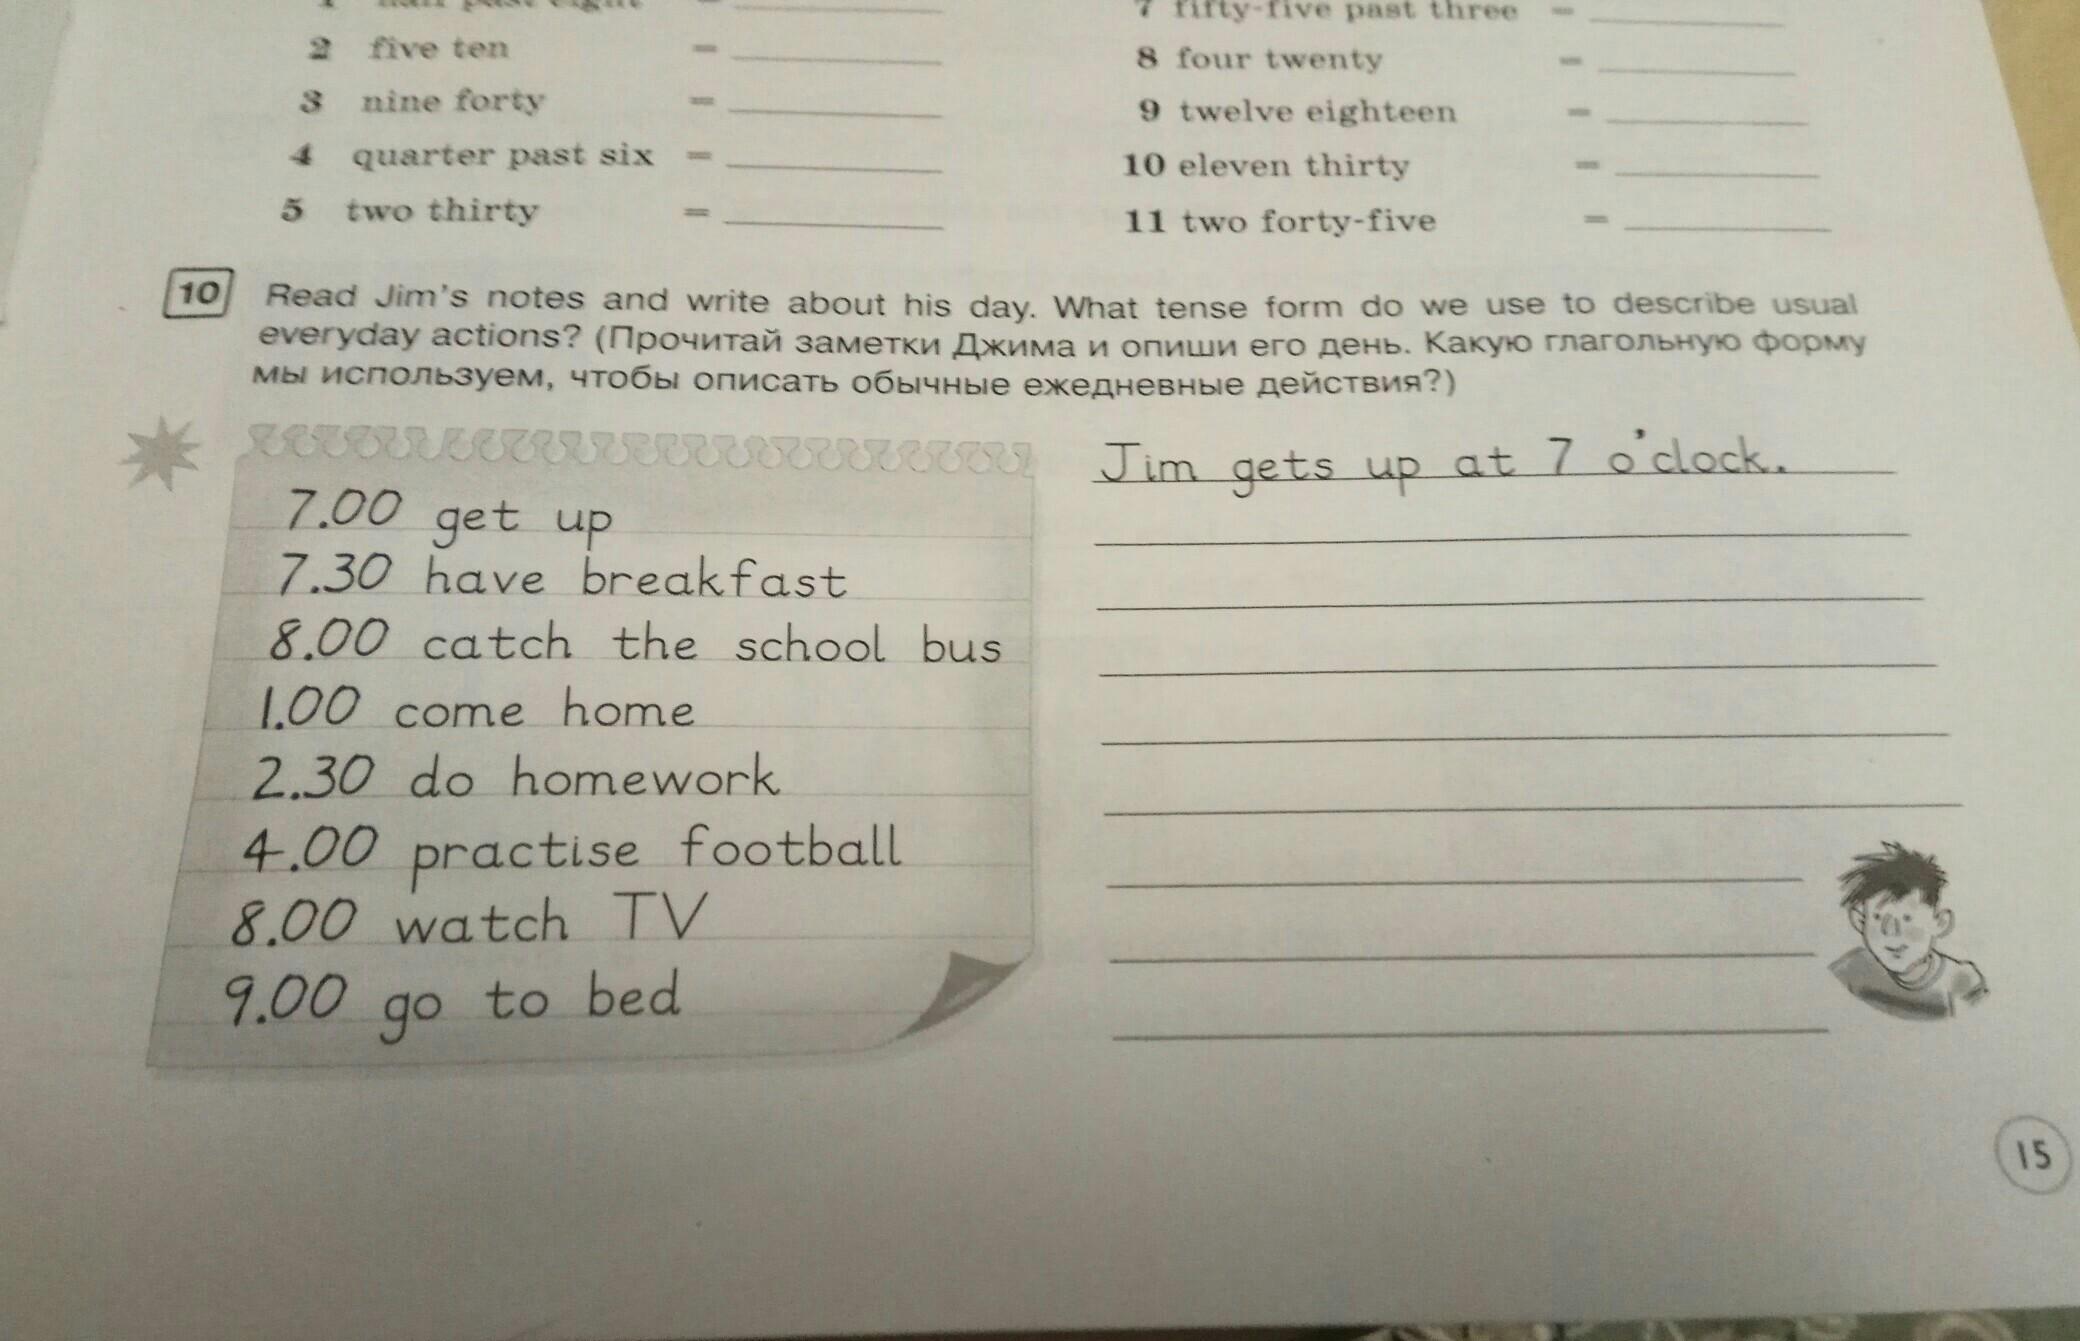 1 half past eight =
2 five ten =
3 nine forty =
4 quarter past six =
5 two thirty =
7 fifty-five past three =
8 four twenty =
9 twelve eighteen =
10 eleven thirty =
11 two forty-five =
10 Read Jim's notes and write about his day. What tense form do we use to describe usual
everyday actions? (Прочитай заметки Джима и опиши его день. Какую глагольную форму
мы используем, чтобы описать обычные ежедневные действия?)
7.00 get up
7.30 have breakfast
8.00 catch the school bus
1.00 come home
2.30 do homework
4.00 practise football
8.00 watch TV
9.00 go to bed
Jim gets up at 7 o'clock.
15